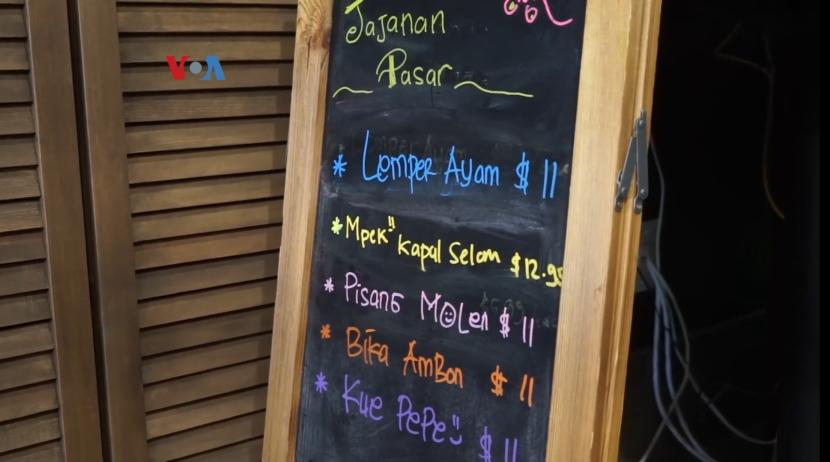 VOA
Jajanan
Pasar
* Lemper Ayam $ 11
* Mpek" Kapal Selam $12.95
* Pisang Molen $ 11
* Bika Ambon $ 11
* Kue Pepe" $ 11